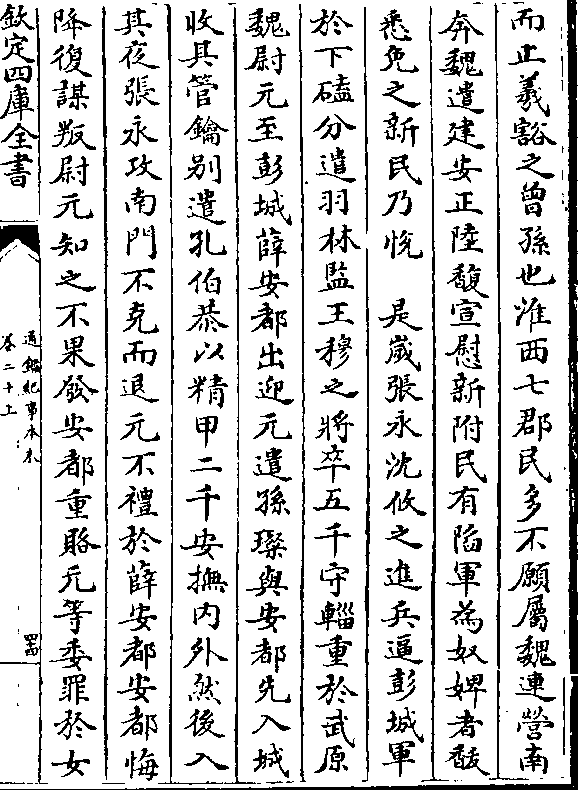 而止羲豁之曾孫也淮西七郡民多不願屬魏連營南
奔魏遣建安正陸馛宣慰新附民有陷軍為奴婢者馛
悉免之新民乃悅　是歲張永沈攸之進兵逼彭城軍
於下磕分遣羽林監王穆之將卒五千守輜重於武原
魏尉元至彭城薛安都出迎元遣孫璨與安都先入城
收其管鑰別遣孔伯恭以精甲二千安撫內外然後入
其夜張永攻南門不克而退元不禮於薛安都安都悔
降復謀叛尉元知之不果發安都重賂元等委罪於女
欽定四庫全書
通鑑紀事本末
卷二十上